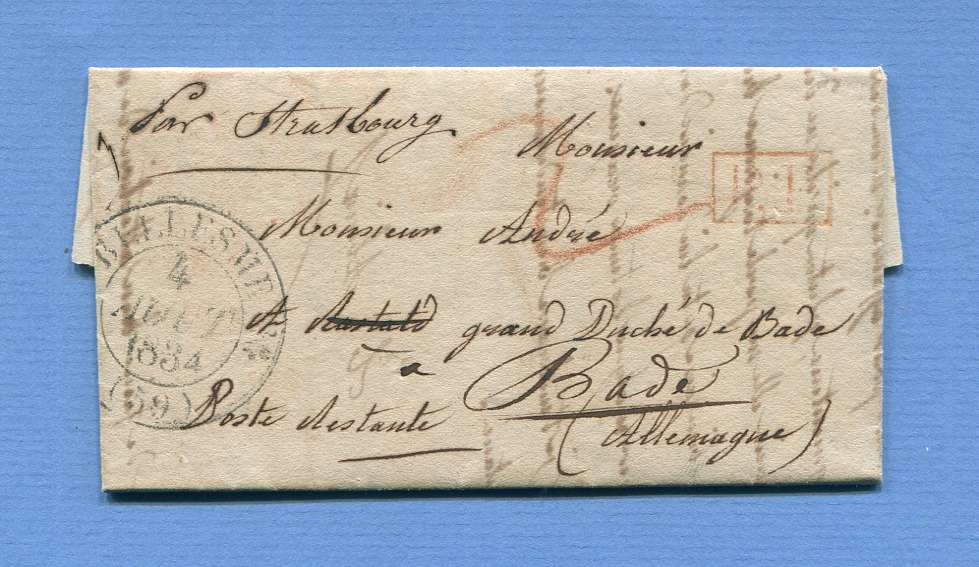 Par Strasbourg
Monsieur
Monsieur André
A Rastatd grand Duché de Bade
a Bade
Poste Restante (Allemagne)
BELLESME
4
JUIL
1834
(59)